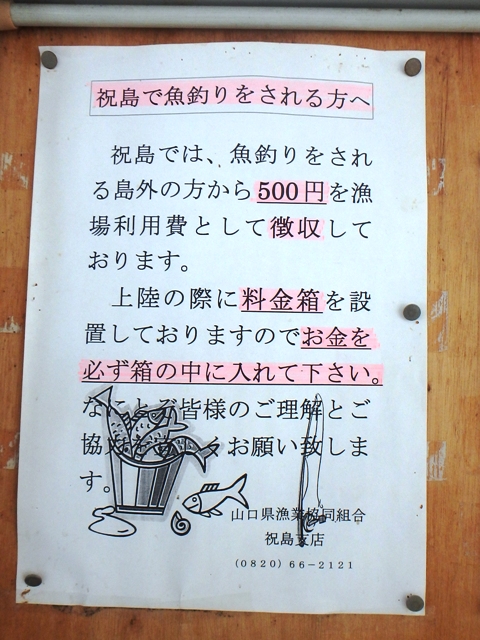 祝島で魚釣りをされる方へ
祝島では、魚釣りをされ
る島外の方から500円を漁
場利用費として徴収して
おります。
上陸の際に料金箱を設
置しておりますのでお金を
必ず箱の中に入れて下さい。
なにとぞ皆様のご理解とご
協力を宜しくお願い致しま
す。
山口県漁業協同組合
祝島支店
(0820)66-2121